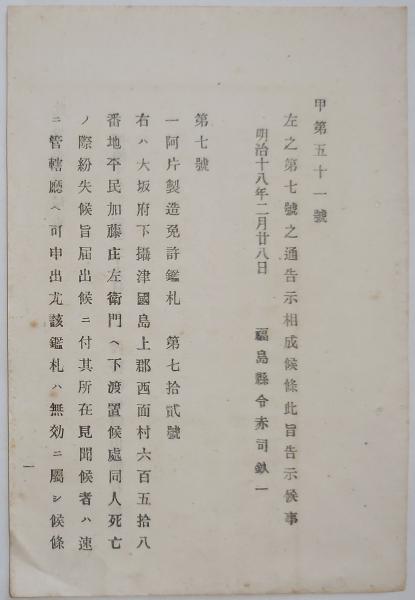 甲第五十一號
左之第七號之通告示相成候條此旨告示候事
明治十八年二月廿八日　福島縣令赤司欽一
第七號
一阿片製造免許鑑札　第七拾貳號
右ハ大坂府下攝津國島上郡西面村六百五拾八
番地平民加藤庄左衛門ヘ下渡置候處同人死亡
ノ際紛失候旨届出候ニ付其所在見聞候者ハ速
ニ管轄廳ヘ可申出尤該鑑札ハ無効ニ屬シ候條
一